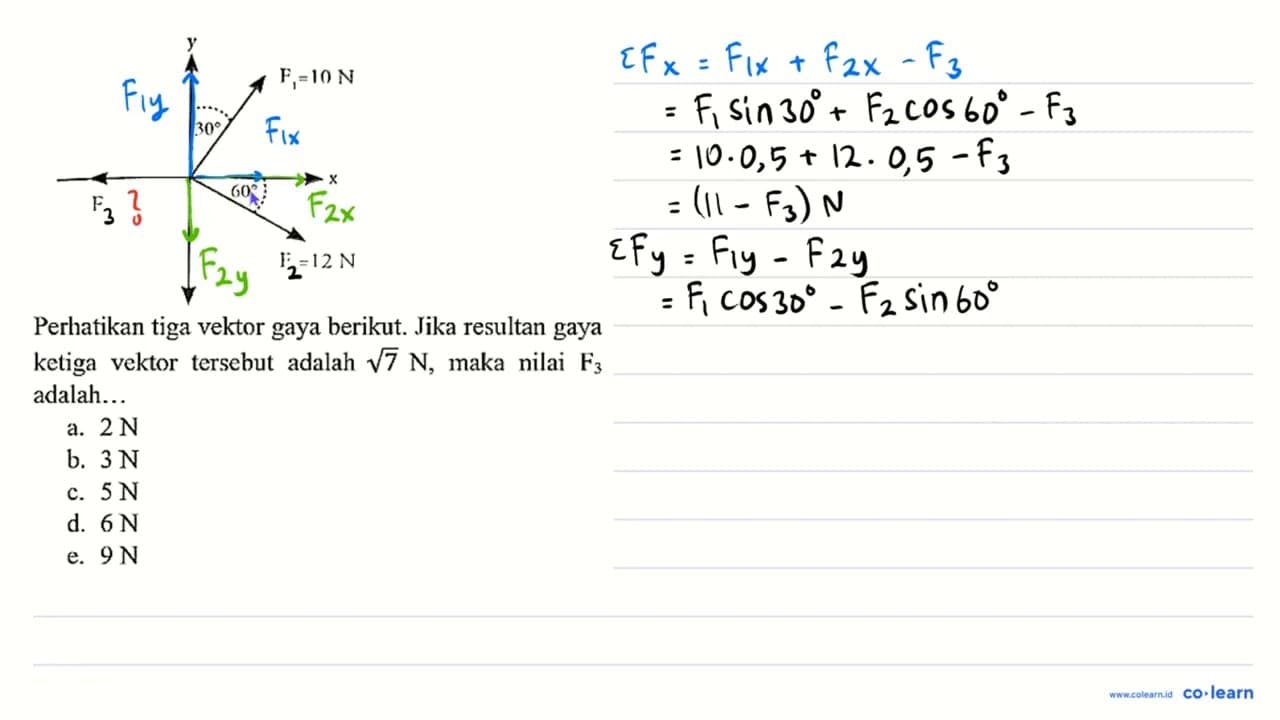 y
F₁=10 N
F1y
30°
F1x
x
60°
F₃ ?
F2x
F2y
F₂=12 N
Perhatikan tiga vektor gaya berikut. Jika resultan gaya
ketiga vektor tersebut adalah √7 N, maka nilai F₃
adalah...
a. 2 N
b. 3 N
c. 5 N
d. 6 N
e. 9 N
ΣFx = F1x + F2x - F3
= F1 sin 30° + F2 cos 60° - F3
= 10 . 0,5 + 12 . 0,5 - F3
= (11 - F3) N
ΣFy = F1y - F2y
= F1 cos 30° - F2 sin 60°
www.colearn.id co·learn